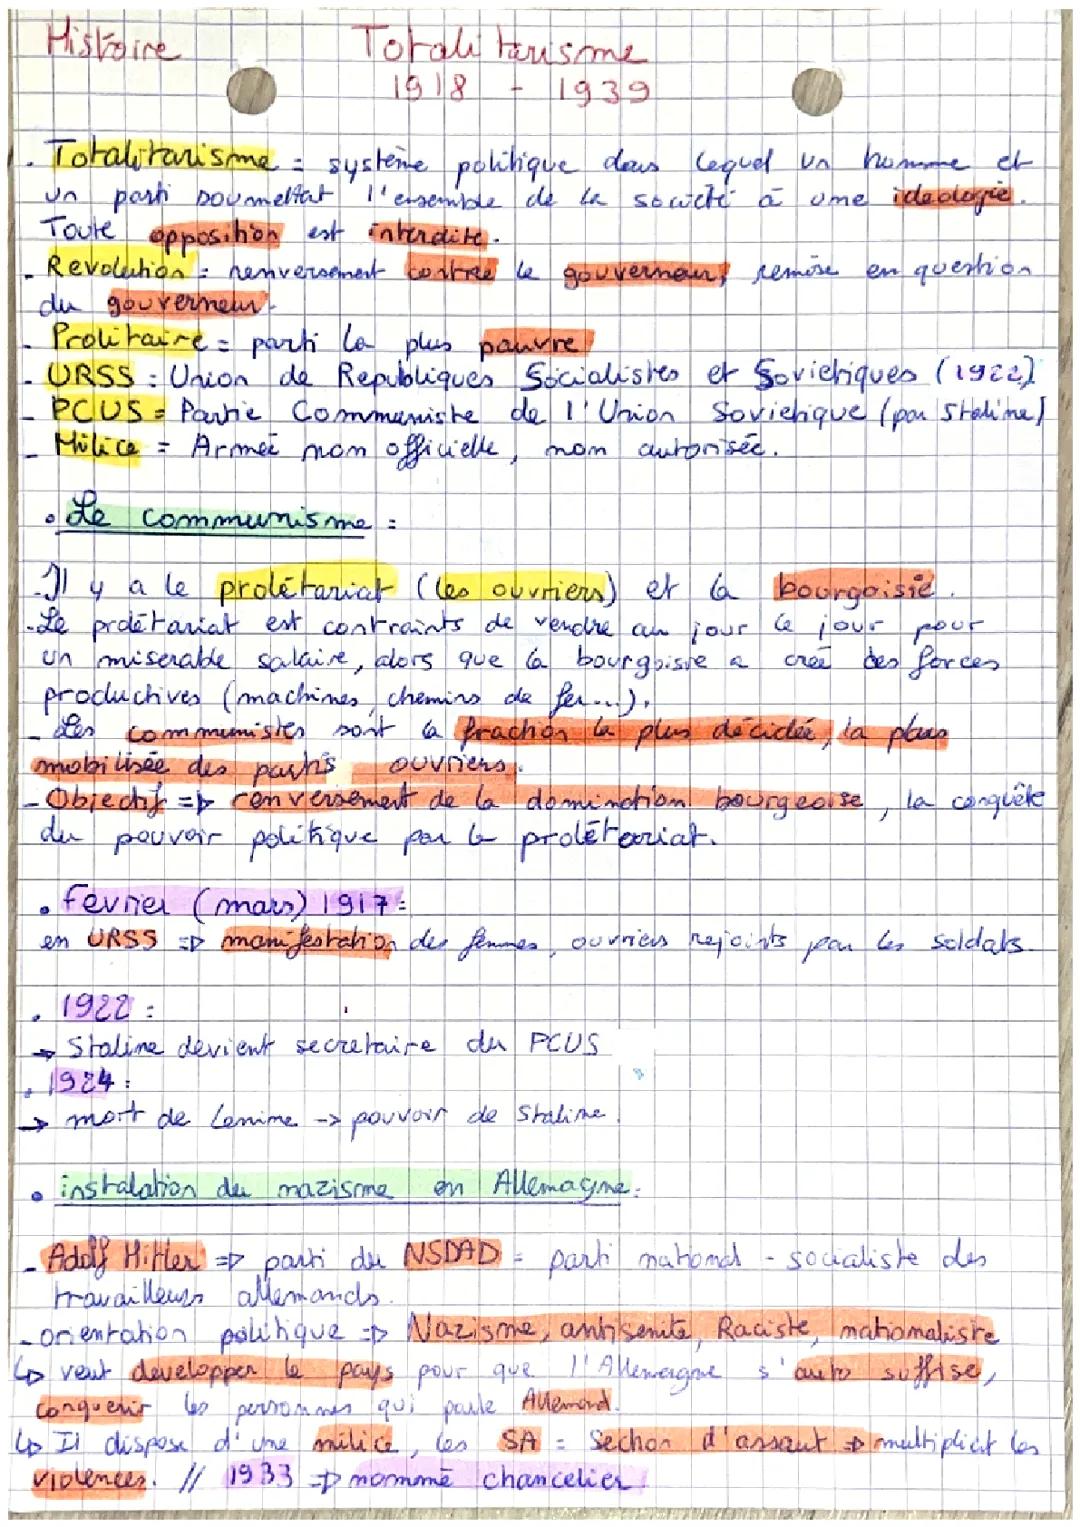 Histoire Totalitarisme
1918 - 1939
. Totalitarisme = système politique dans lequel un homme et
un parti soumettat l'ensemble de la société à une ideologie.
Toute opposition est interdite.
- Revolution : renversement contre le gouverneur, remise en question
du gouverneur.
- Prolitaire = parti la plus pauvre
- URSS : Union de Republiques Socialistes et Sovietiques (1922)
- PCUS = Partie Communiste de l'Union Sovietique (par Staline)
- Milice = Armée non officielle, non autorisée.
• Le communisme :
- Il y a le prolétariat (les ouvriers) et la bourgoisie.
- Le prolétariat est contraints de vendre au jour le jour pour
un miserable salaire, alors que la bourgoisie a créé des forces
productives (machines, chemins de fer...).
- Les communistes sont la fraction la plus décidée, la plus
mobilisée des partis ouvriers.
- Objectif => renversement de la domination bourgeoise, la conquête
du pouvoir politique par le prolétariat.
• fevrier (mars) 1917 :
en URSS => manifestation des femmes, ouvriers rejoints par les soldats.
. 1922 :
→ Staline devient secretaire du PCUS
. 1924 :
→ mort de Lenine -> pouvoir de Staline.
• instalation du nazisme en Allemagne :
- Adolf Hitler => parti du NSDAD = parti national - socialiste des
travailleurs allemands.
- orientation politique => Nazisme, antisemite, Raciste, nationaliste
↳ veut developper le pays pour que l'Allemagne s'auto suffise,
conquerir les personnes qui parle Allemand.
↳ Il dispose d'une milice, les SA = Section d'assaut => multiplient les
violences. // 1933 => nommé chancelier